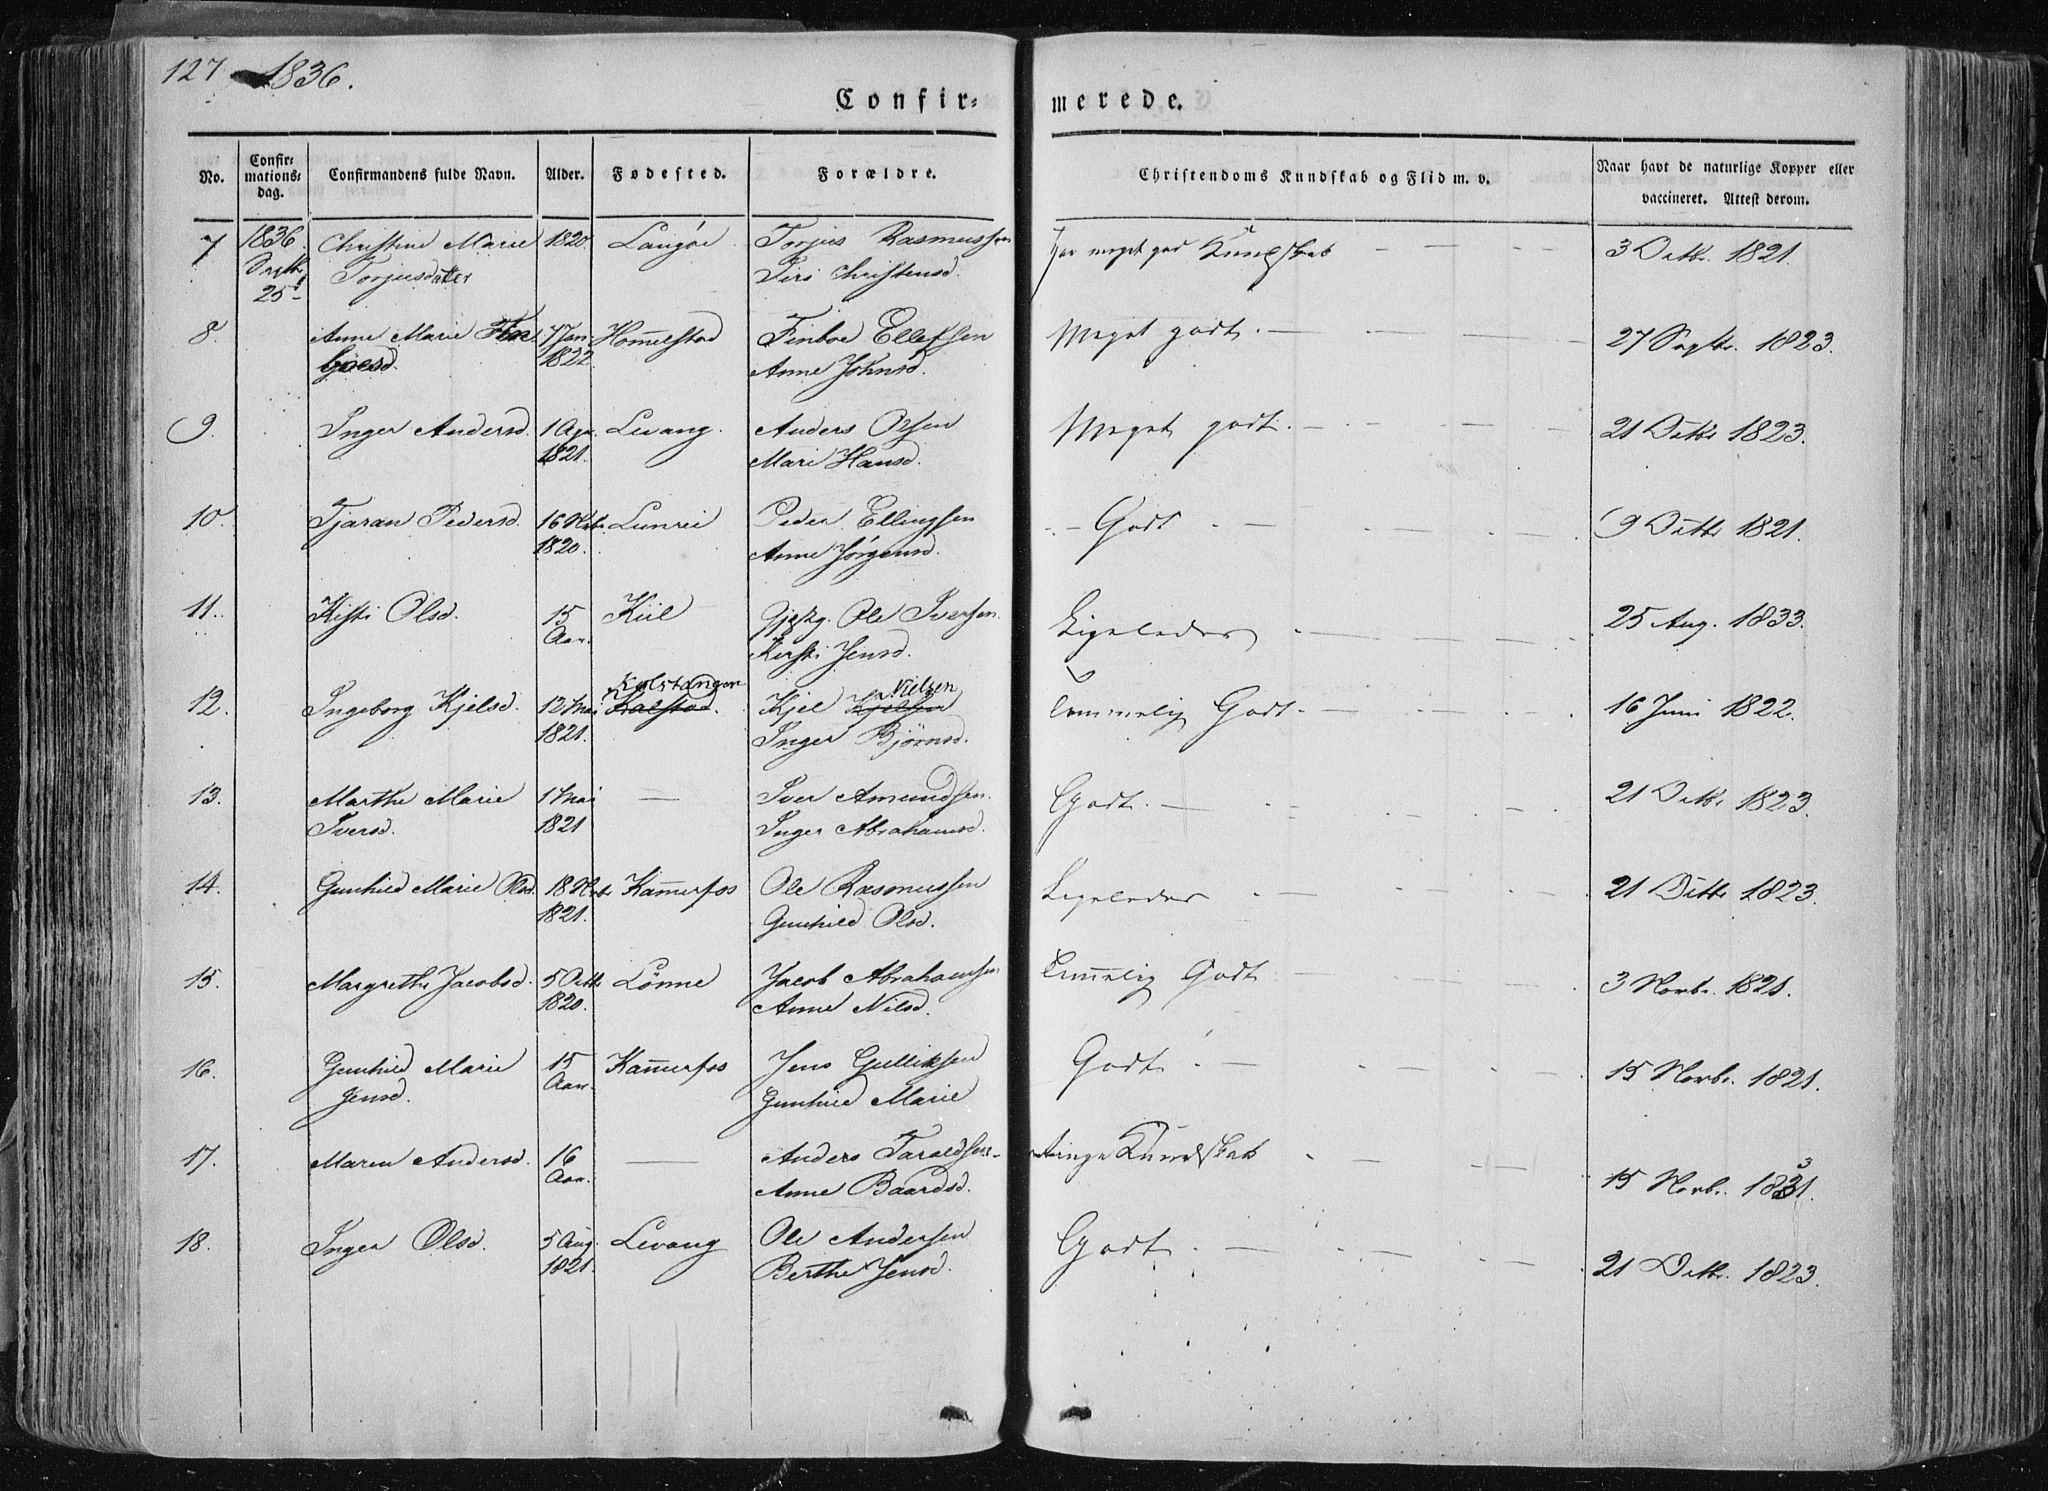 127 1836.
Confir- merede.
No. Confirmations- dag. Confirmandens fulde Navn. Alder. Fødested. Forældre. Christendoms Kundskab og Flid m. v. Naar havt de naturlige Kopper eller vaccineret. Attest derom.
7 1836. Christine Marie 1820. Langøe Torjus Rasmussen Har meget god Kundskab — — — 3 Octbr. 1821.
Septbr. Torjusdatter Siri Christensd.
25
8. Anne Marie Fin 7 Jan. Homelstad Finboe Ellefsen Meget godt. — — — 27 Septbr. 1823.
boesd. 1822. Anne Johnsd.
9. Inger Andersd. 1 Apr. Levang. Anders Olsen Meget godt. — — — 21 Octbr 1823.
1821. Mari Hansd.
10. Tjaran Pedersd. 16 Nvbr. Lunrei Peder Ellingsen Godt — — — 9 Octbr 1821.
1820. Anne Jørgensd.
11. Kisti Olsd. 15 Kiil Ole Iversen Ligeledes — — — 25 Aug. 1833.
Aar. Kirsti Jensd.
Kolstangen Nielsen
12. Ingeborg Kjelsd. 12 Mai Kalstad. Kjel Kjelsen Temmelig Godt — — — 16 Juni 1822.
1821. Inger Bjørnsd.
13. Marthe Marie 1 Mai — Iver Amundsen. Godt. — — — 21 Octbr 1823.
Iversd. 1821 Inger Abrahamsd.
14. Gunhild Marie Olsd. 18 Nvbr Kamerfos Ole Rasmussen Ligeledes — — — 21 Octbr 1823.
1821. Gunhild Olsd.
15. Margrethe Jacobsd. 5 Octbr Lønne Jacob Abrahamsen Temelig Godt — — — 3 Novbr. 1821.
1820. Anne Nilsd.
16. Gunhild Marie 15 Kamerfos Jens Gulliksen Godt — — — 15 Novbr. 1821.
Jensd. Aar. Gunhild Marie
17. Maren Andersd. 16 — Anders Taraldsen Ringe Kundskab — — — 15 Novbr. 1831.
Aar. Anne Baardsd.
18. Inger Olsd. 5 Aug. Levang Ole Andersen Godt — — — 21 Octbr. 1823.
1821. Berthe Jensd.